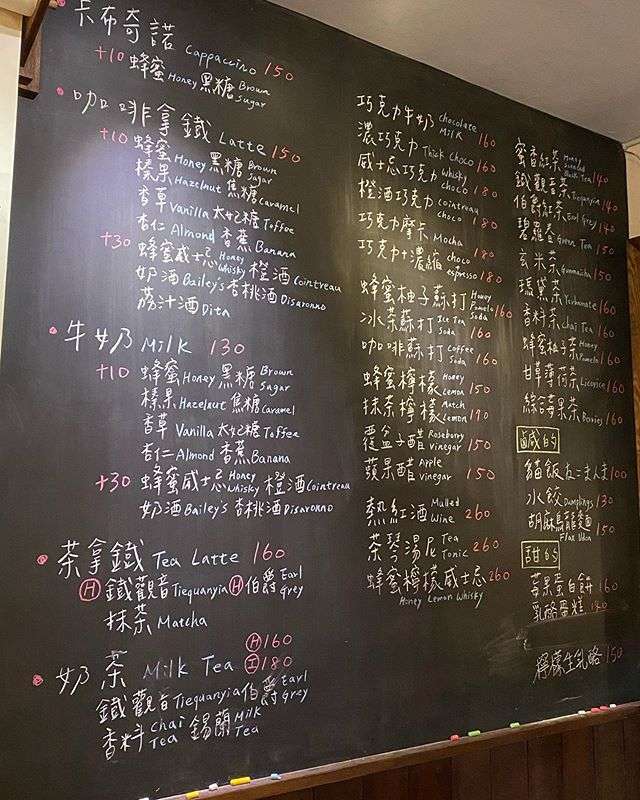 卡布奇諾 Cappuccino 150
+10 蜂蜜 Honey 黑糖 Brown Sugar
咖啡拿鐵 Latte 150
+10 蜂蜜 Honey 黑糖 Brown Sugar
榛果 Hazelnut 焦糖 Caramel
香草 Vanilla 太妃糖 Toffee
杏仁 Almond 香蕉 Banana
+30 蜂蜜威士忌 Honey Whisky 橙酒 Cointreau
奶酒 Bailey's 杏桃酒 Disaronno
荔汁酒 Dita
牛奶 Milk 130
+10 蜂蜜 Honey 黑糖 Brown Sugar
榛果 Hazelnut 焦糖 Caramel
香草 Vanilla 太妃糖 Toffee
杏仁 Almond 香蕉 Banana
+30 蜂蜜威士忌 Honey Whisky 橙酒 Cointreau
奶酒 Bailey's 杏桃酒 Disaronno
茶拿鐵 Tea Latte 160
Ⓗ 鐵觀音 Tieguanyia Ⓗ 伯爵 Earl Grey
抹茶 Matcha
奶茶 Milk Tea Ⓗ 160 Ⓘ 180
鐵觀音 Tieguanyia 伯爵 Earl Grey
香料 Chai Tea 錫蘭 Milk Tea
巧克力牛奶 Chocolate Milk 160
濃巧克力 Thick Choco 160
威士忌巧克力 Whisky choco 180
橙酒巧克力 Cointreau choco 180
巧克力摩卡 Mocha 180
巧克力+濃縮 choco espresso 180
蜂蜜柚子蘇打 Honey Pomelo Soda 160
冰茶蘇打 Ice Tea Soda 160
咖啡蘇打 Coffee Soda 160
蜂蜜檸檬 Honey Lemon 150
抹茶檸檬 Match Lemon 170
覆盆子醋 Vinegar 150
蘋果醋 Apple Vinegar 150
熱紅酒 Mulled Wine 260
茶琴湯尼 Tea Tonic 260
蜂蜜檸檬威士忌 260
Honey Lemon Whisky
蜜香紅茶 Black Tea 140
鐵觀音茶 Tieguanyia 140
伯爵紅茶 Earl Grey 140
碧蘿春 Green Tea 150
玄米茶 Genmaicha 150
瑪黛茶 160
香料茶 Chai Tea 160
蜂蜜柚子茶 Honey 160
甘草薄荷茶 Licorice 160
綜合莓果茶 Berries 160
鹹的
貓飯 100
水餃 Dumplings 130
胡麻烏龍麵 150
甜的
蛋白餅 160
乳酪蛋糕 140
檸檬生乳酪 150